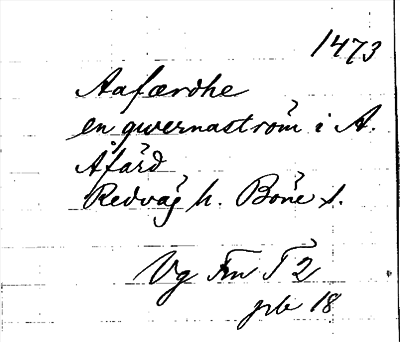 1473
Aafærdhe
en qwernaström i A.
Åfärd
Redväg h. Böne s.
Vg Fru T 2
prb 18